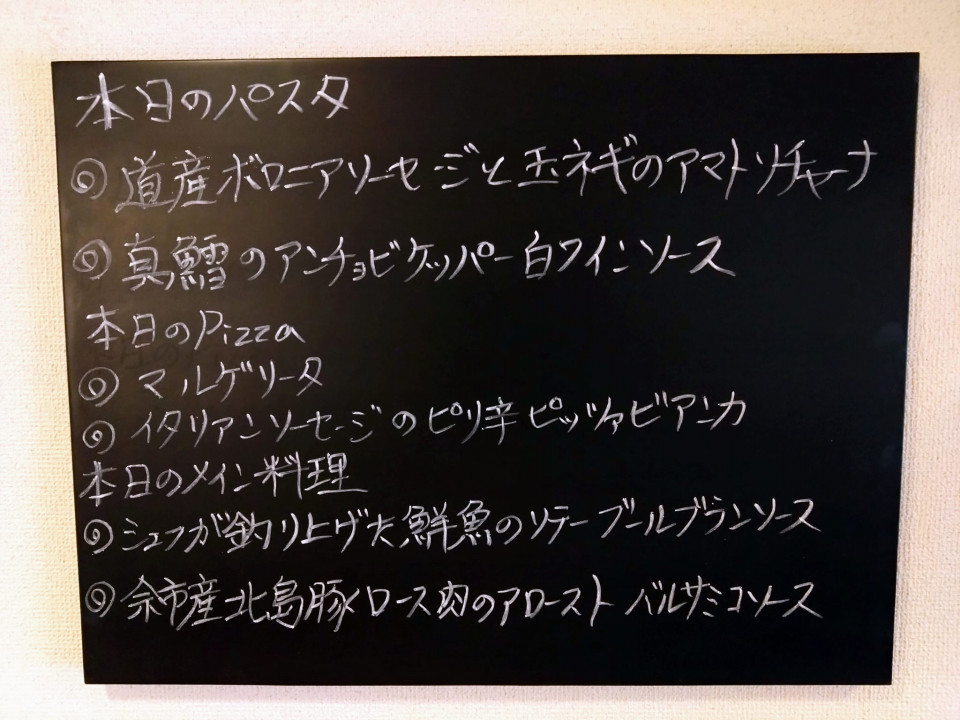 本日のパスタ
◎道産ボロニアソーセージと玉ネギのアマトリチャーナ
◎真鱈のアンチョビケッパー白ワインソース
本日のPizza
◎マルゲリータ
◎イタリアンソーセージのピリ辛ピッツァビアンカ
本日のメイン料理
◎シェフが釣り上げた鮮魚のソテーブールブランソース
◎余市産北島豚ロース肉のアロースト バルサミコソース